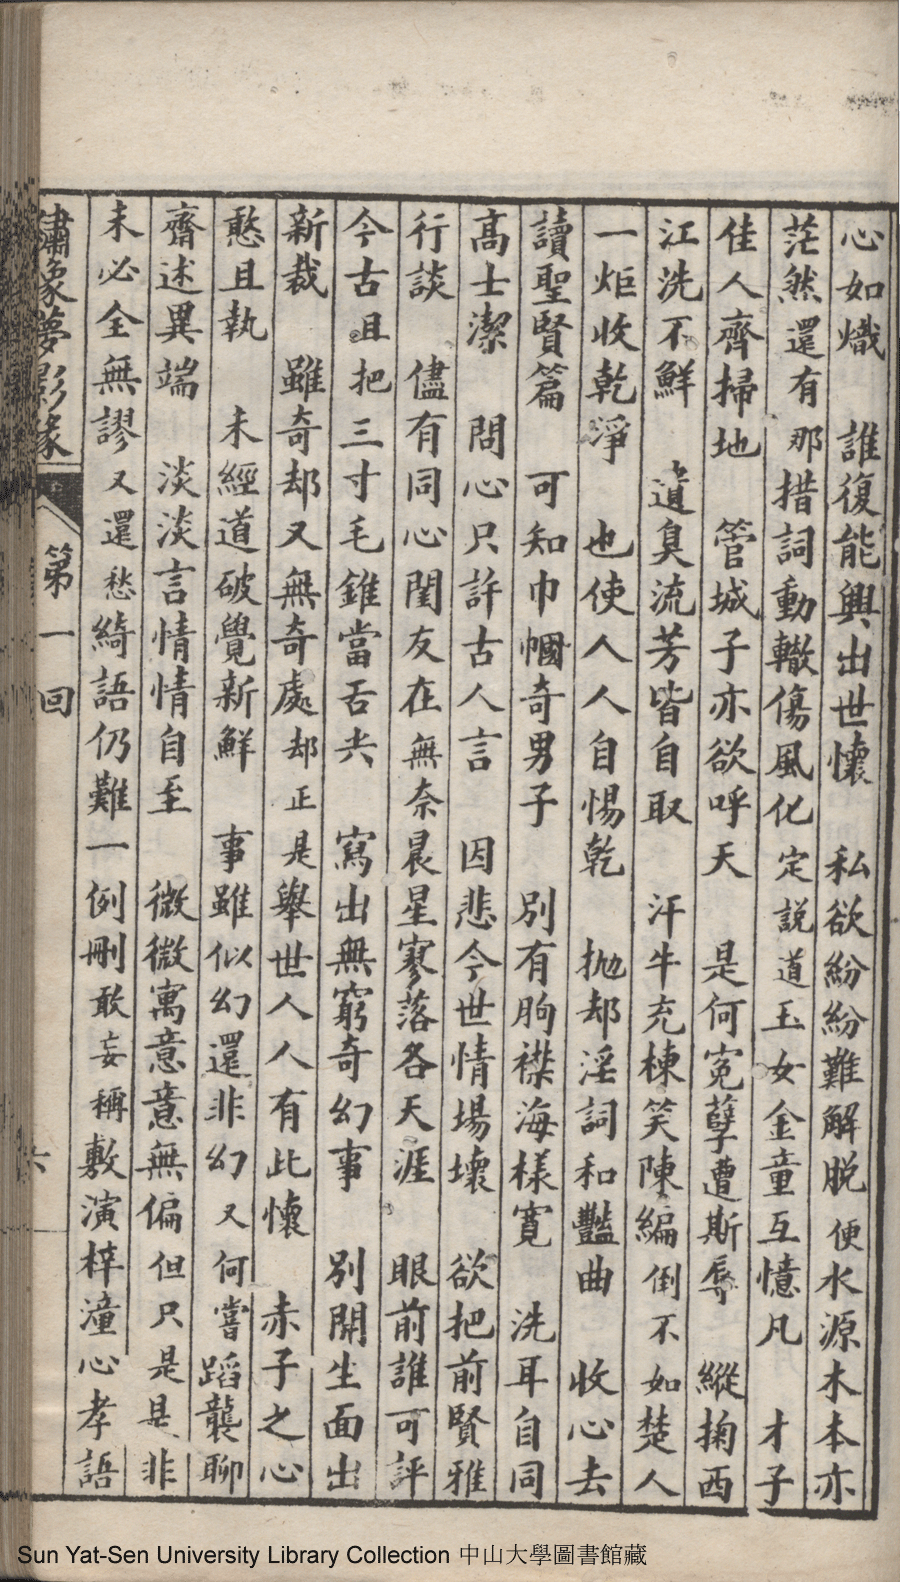 心如熾　誰復能興出世懷　私欲紛紛難解脱便水源木本亦
茫然還有那措詞動轍傷風化定説道玉女金童互憶凡　才子
佳人齊掃地　管城子亦欲呼天　是何寃孽遭斯辱　縱掬西
江洗不鮮　遺臭流芳皆自取　汗牛充棟笑陳編倒不如楚人
一炬收乾淨　也使人人自惕乾　拋却淫詞和豔曲　收心去
讀聖賢篇　可知巾幗奇男子　別有胸襟海樣寬　洗耳自同
高士潔　問心只許古人言　因悲今世情場壞　欲把前賢雅
行談　儘有同心閨友在無奈晨星寥落各天涯　眼前誰可評
今古且把三寸毛錐當舌尖　寫出無窮奇幻事　別開生面出
新裁　雖奇却又無奇處却正是舉世人人有此懷　赤子之心
憨且執　未經道破覺新鮮　事雖似幻還非幻又何嘗蹈襲聊
齋述異端　淡淡言情情自至　微微寓意意無偏但只是是非
未必全無謬又還愁綺語仍難一例刪敢妄稱敷演梓潼心孝語
繡像夢影緣　第一回　六
Sun Yat-Sen University Library Collection 中山大學圖書館藏